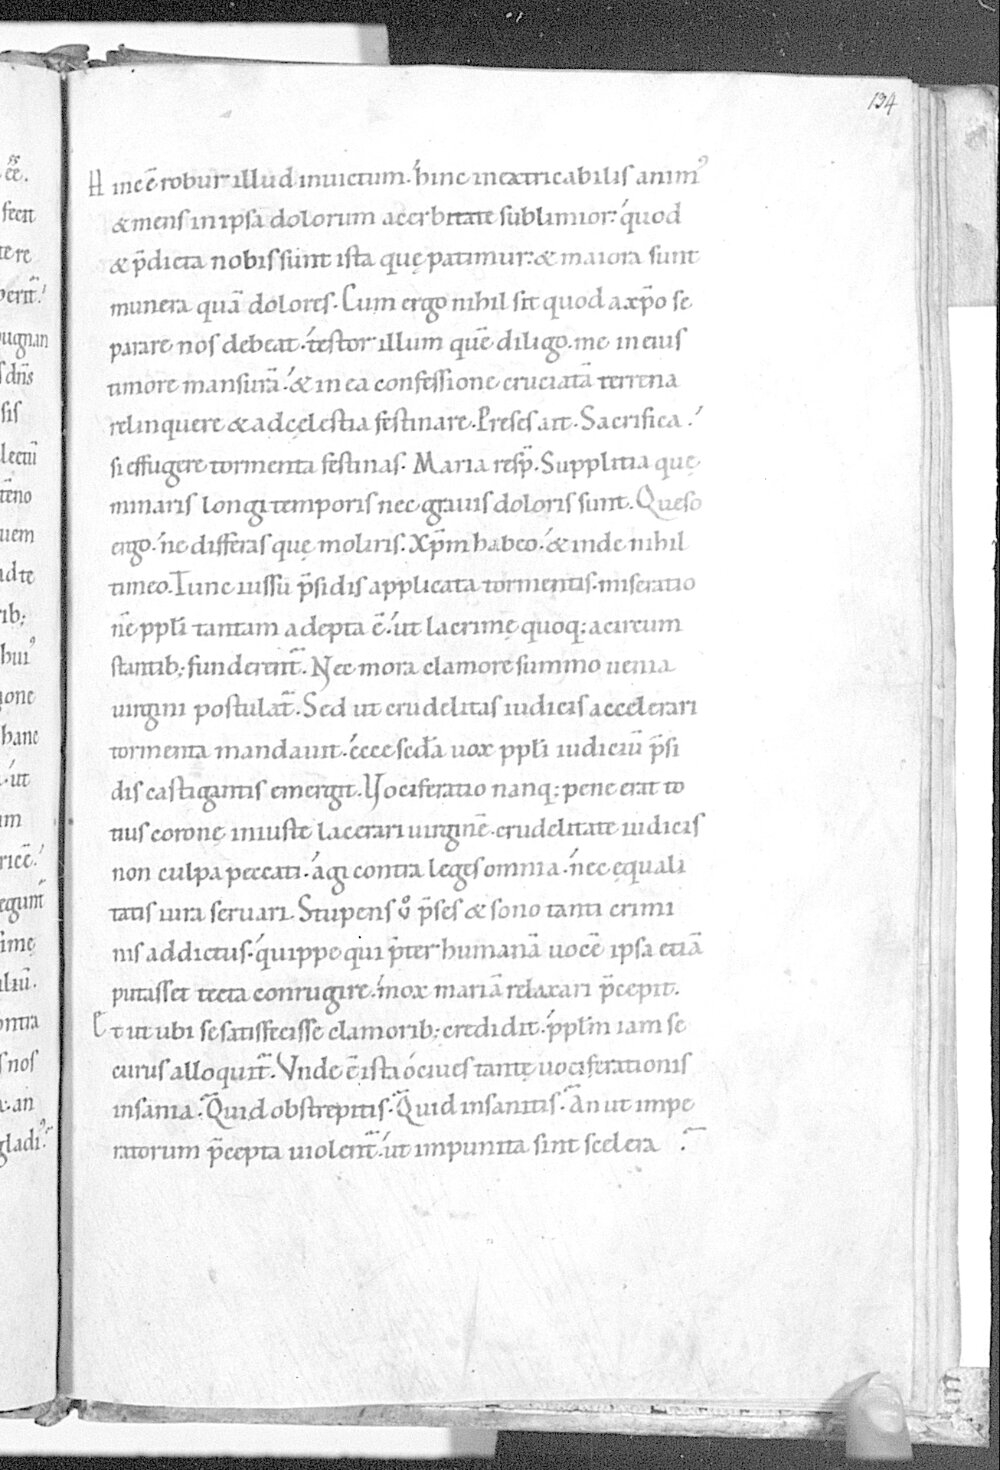 194
ēē.
fecit
tere
perit̄.
pugnan
s dn̄s
sis
lectū
tēno
uem
ad te
rib;
bui⁹
ione
hanc
ut
um
ricē.
egunt̄
simę
iliū.
ontra
s nos
an
gladi⁹.
Hinc ē robur illud inuictum. hinc inextricabilis anim⁹
& mens in ipsa dolorum acerbitate sublimior. quod
& p̄dicta nobis sunt ista quę patimur. & maiora sunt
munera quā dolores. Cum ergo nihil sit quod a xp̄o se
parare nos debeat. testor illum quē diligo. me in eius
timore mansurā. & in ea confessione cruciatā terrena
relinquere & ad cęlestia festinare. Preses ait. Sacrifica.
si effugere tormenta festinas. Maria resp̄. Supplitia quę
minaris longi temporis nec grauis doloris sunt. Queso
ergo. ne differas quę moliris. Xp̄m habeo. & inde nihil
timeo. Tunc iussu p̄sidis applicata tormentis. miseratio
nē pplī tantam adepta ē. ut lacrimę quoq; a circum
stantib; funderent̄. Nec mora clamore summo uenia
uirgini postulat̄. Sed ut crudelitas iudicis accelerari
tormenta mandauit. ecce sed̄a uox pplī iudiciū p̄si
dis castigantis emergit. Vociferatio nanq; pene erat to
tius coronę iniuste lacerari uirginē. crudelitate iudicis
non culpa peccati. agi contra leges omnia. nec ęquali
tatis iura seruari. Stupens v̊ p̄ses & sono tanti crimi
nis addictus. quippe qui p̄ter humanā uocē ipsa etiā
putasset tecta conrugire. mox mariā relaxari p̄cepit.
Et ut ubi se satisfecisse clamorib; credidit. pplm̄ iam se
curus alloquit̄. Vnde ē ista o ciues tantę uociferationis
insania. Quid obstrepitis. Quid insanitis. An ut impe
ratorum p̄cepta uiolent̄. ut impunita sint scelera.